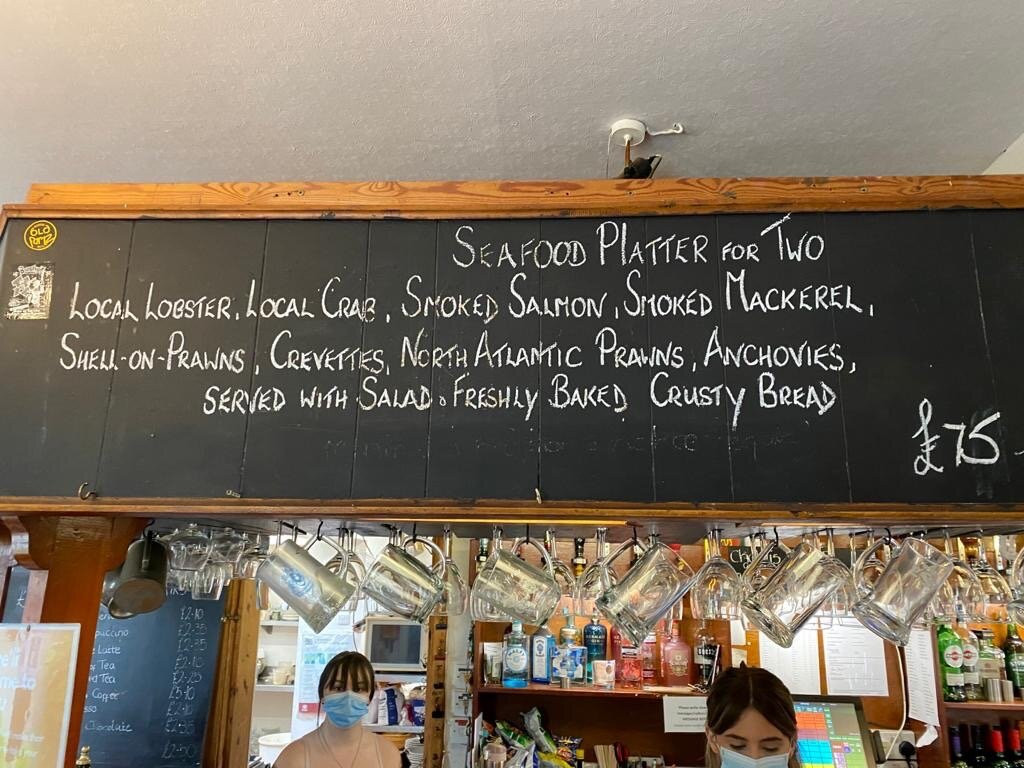 OLD PORTZ
SEAFOOD PLATTER FOR TWO
LOCAL LOBSTER, LOCAL CRAB, SMOKED SALMON, SMOKED MACKEREL,
SHELL-ON-PRAWNS, CREVETTES, NORTH ATLANTIC PRAWNS, ANCHOVIES,
SERVED WITH SALAD & FRESHLY BAKED CRUSTY BREAD
£75
£2.10
£2.35
Latte £2.35
Tea £2.10
Tea £2.20
Coffee
Chocolate £2.35
£2.50